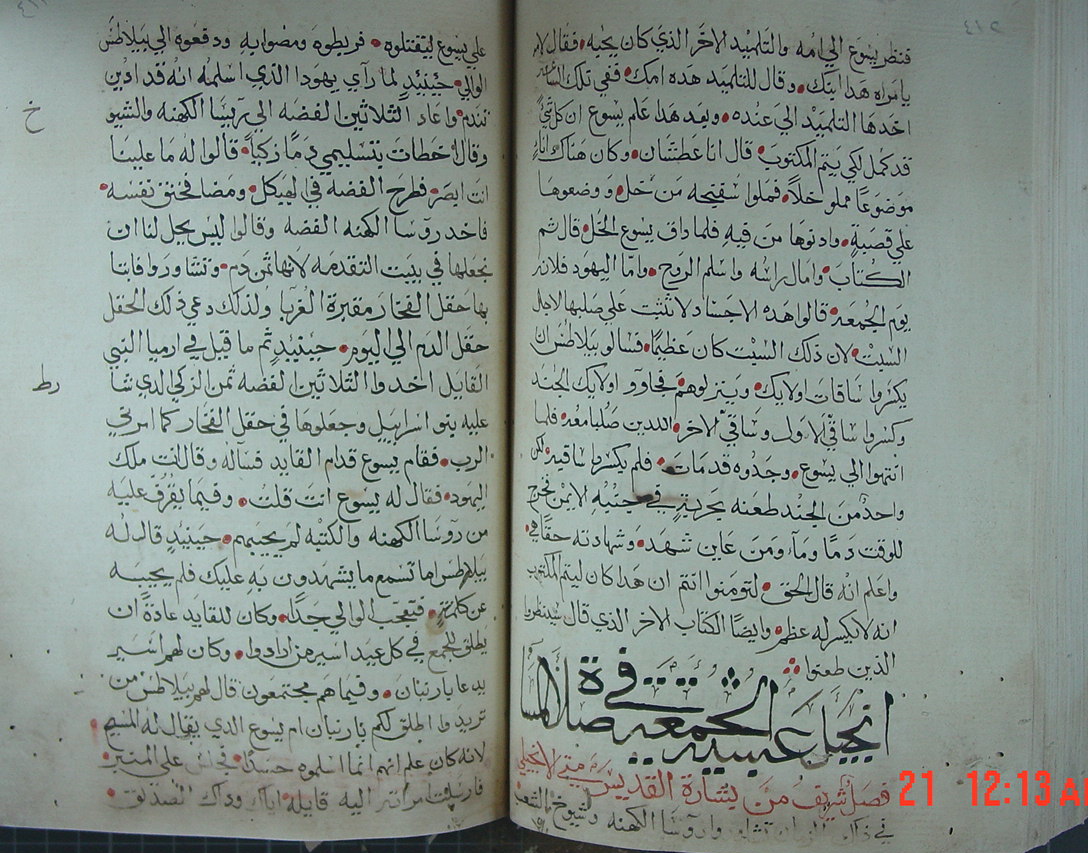 فنظر يسوع الي امه والتلميد الاخر الذي كان يحبه فقال لامه
يا مراه هدا ابنك وقال للتلميد هده امك ففي تلك الساعه
اخدها التلميد الي عنده وبعد هدا علم يسوع ان كل شي
قد كمل لكي يتم المكتوب قال انا عطشان وكان هناك اناء
موضوعًا مملو خلاً فملوا سفنجه من خل ووضعوها
علي قصبة وادنوها من فيه فلما داق يسوع الخل قال تم
الكتاب وامال راسه واسلم الروح واما اليهود فلانه
يوم الجمعه قالوا هده الاجساد لا تثبت علي صلبها لاجل
السبت لان ذلك السبت كان عظيمًا فسالو بيلاطس ان
يكسروا ساقات اولايك وينزلوهم فجاوو اولايك الجند
وكسروا ساقي الاول وساقي الاخر اللدين صلبا معه فلما
انتهوا الي يسوع وجدوه قد مات فلم يكسروا ساقيه لكن
واحد من الجند طعنه بحربة في جنبه الايمن فخرج
للوقت دمًا وماء ومن عاين شهد وشهادته حقًا هي
واعلم انه قال الحق لتومنوا انتم ان هدا كان ليتم المكتوب
انه لا يكسر له عظم وايضًا الكتاب الاخر الذي قال سينظروا
الذين طعنوا
انجيل عشية الجمعه في صلاة المسا
فصل شريف من بشارة القديس متي الانجيلي
في ذلك الزمان تشاور روسا الكهنه وشيوخ الشعب
٤١٥
علي يسوع ليقتلوه فربطوه ومضوا به ودفعوه الي بيلاطس
الوالي حينيدٍ لما راي يهودا الذي اسلمه انه قد ادين
تندم واعاد الثلاثين لفضه الي رييسا الكهنه والشيو
وقال اخطات بتسليمي دمًا زكيًا قالوا له ما علينا
انت ابصر فطرح الفضه في الهيكل ومضا فخنق نفسه
فاخد روسا الكهنه الفضه وقالوا ليس يحل لنا ان
نجعلها في بيت التقدمه لانها ثمن دم وتشاوروا فابتا
بها حقل الفخار مقبرة الغربا ولذلك دعي ذلك الحقل
حقل الدم الي اليوم حينيدٍ تم ما قيل في ارميا النبي
القايل اخدوا الثلاثين لفضه ثمن الزكي الدي شا
عليه بنو اسراييل وجعلوها في حقل الفخار كما امرني
الرب فقام يسوع قدام القايد فساله وقال انت ملك
اليهود فقال له يسوع انت قلت وفيما يقرف عليه
من روسا الكهنه والكتبه لم يجيبهم حينيدٍ قال له
بيلاطس اما تسمع ما يشهدون به عليك فلم يجيبه
عن كلمةٍ فتعجب الوالي جدًا وكان للقايد عادةً ان
يطلق للجمع في كل عيد اسير من ارادوا وكان لهم اسير
يدعا بارنبان وفيما هم مجتمعون قال لهم بيلاطس من
تريدوا اطلق لكم بارنبان ام يسوع الذي يقال له المسيح
لانه كان علم انهم انما اسلموه حسدًا علي المنبر
فارسلت مراته اليه قايله اياك وداك الصديق